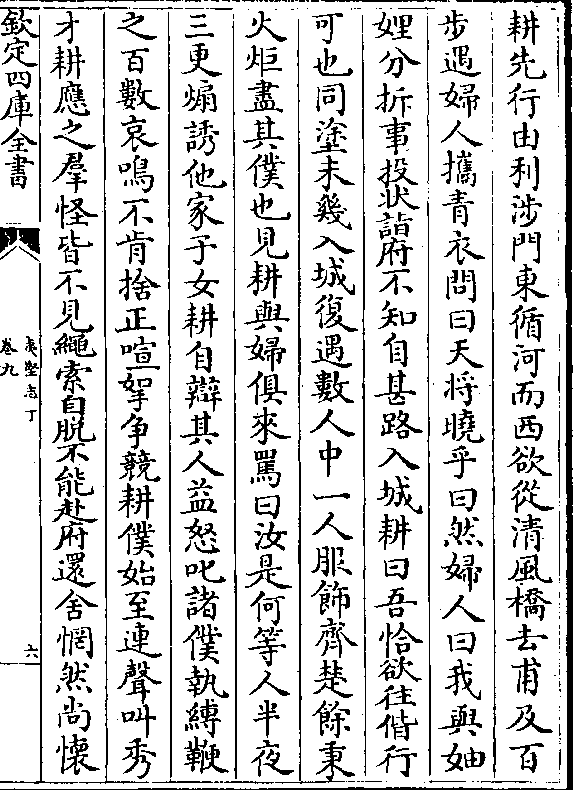 耕先行由利涉門東循河而西欲從清風橋去甫及百
步遇婦人攜青衣問曰天将曉乎曰然婦人曰我與妯
娌分拆事投状詣府不知自甚路入城耕曰吾恰欲往偕行
可也同塗未幾入城復遇數人中一人服飾齊楚餘秉
火炬盡其僕也見耕與婦俱來罵曰汝是何等人半夜
三更煽誘他家子女耕自辯其人益怒叱諸僕執縛鞭
之百數哀鳴不肯捨正喧拏争競耕僕始至連聲叫秀
才耕應之羣怪皆不見繩索自脱不能赴府還舍惘然尚懷
欽定四庫全書
夷堅志丁
卷九
六